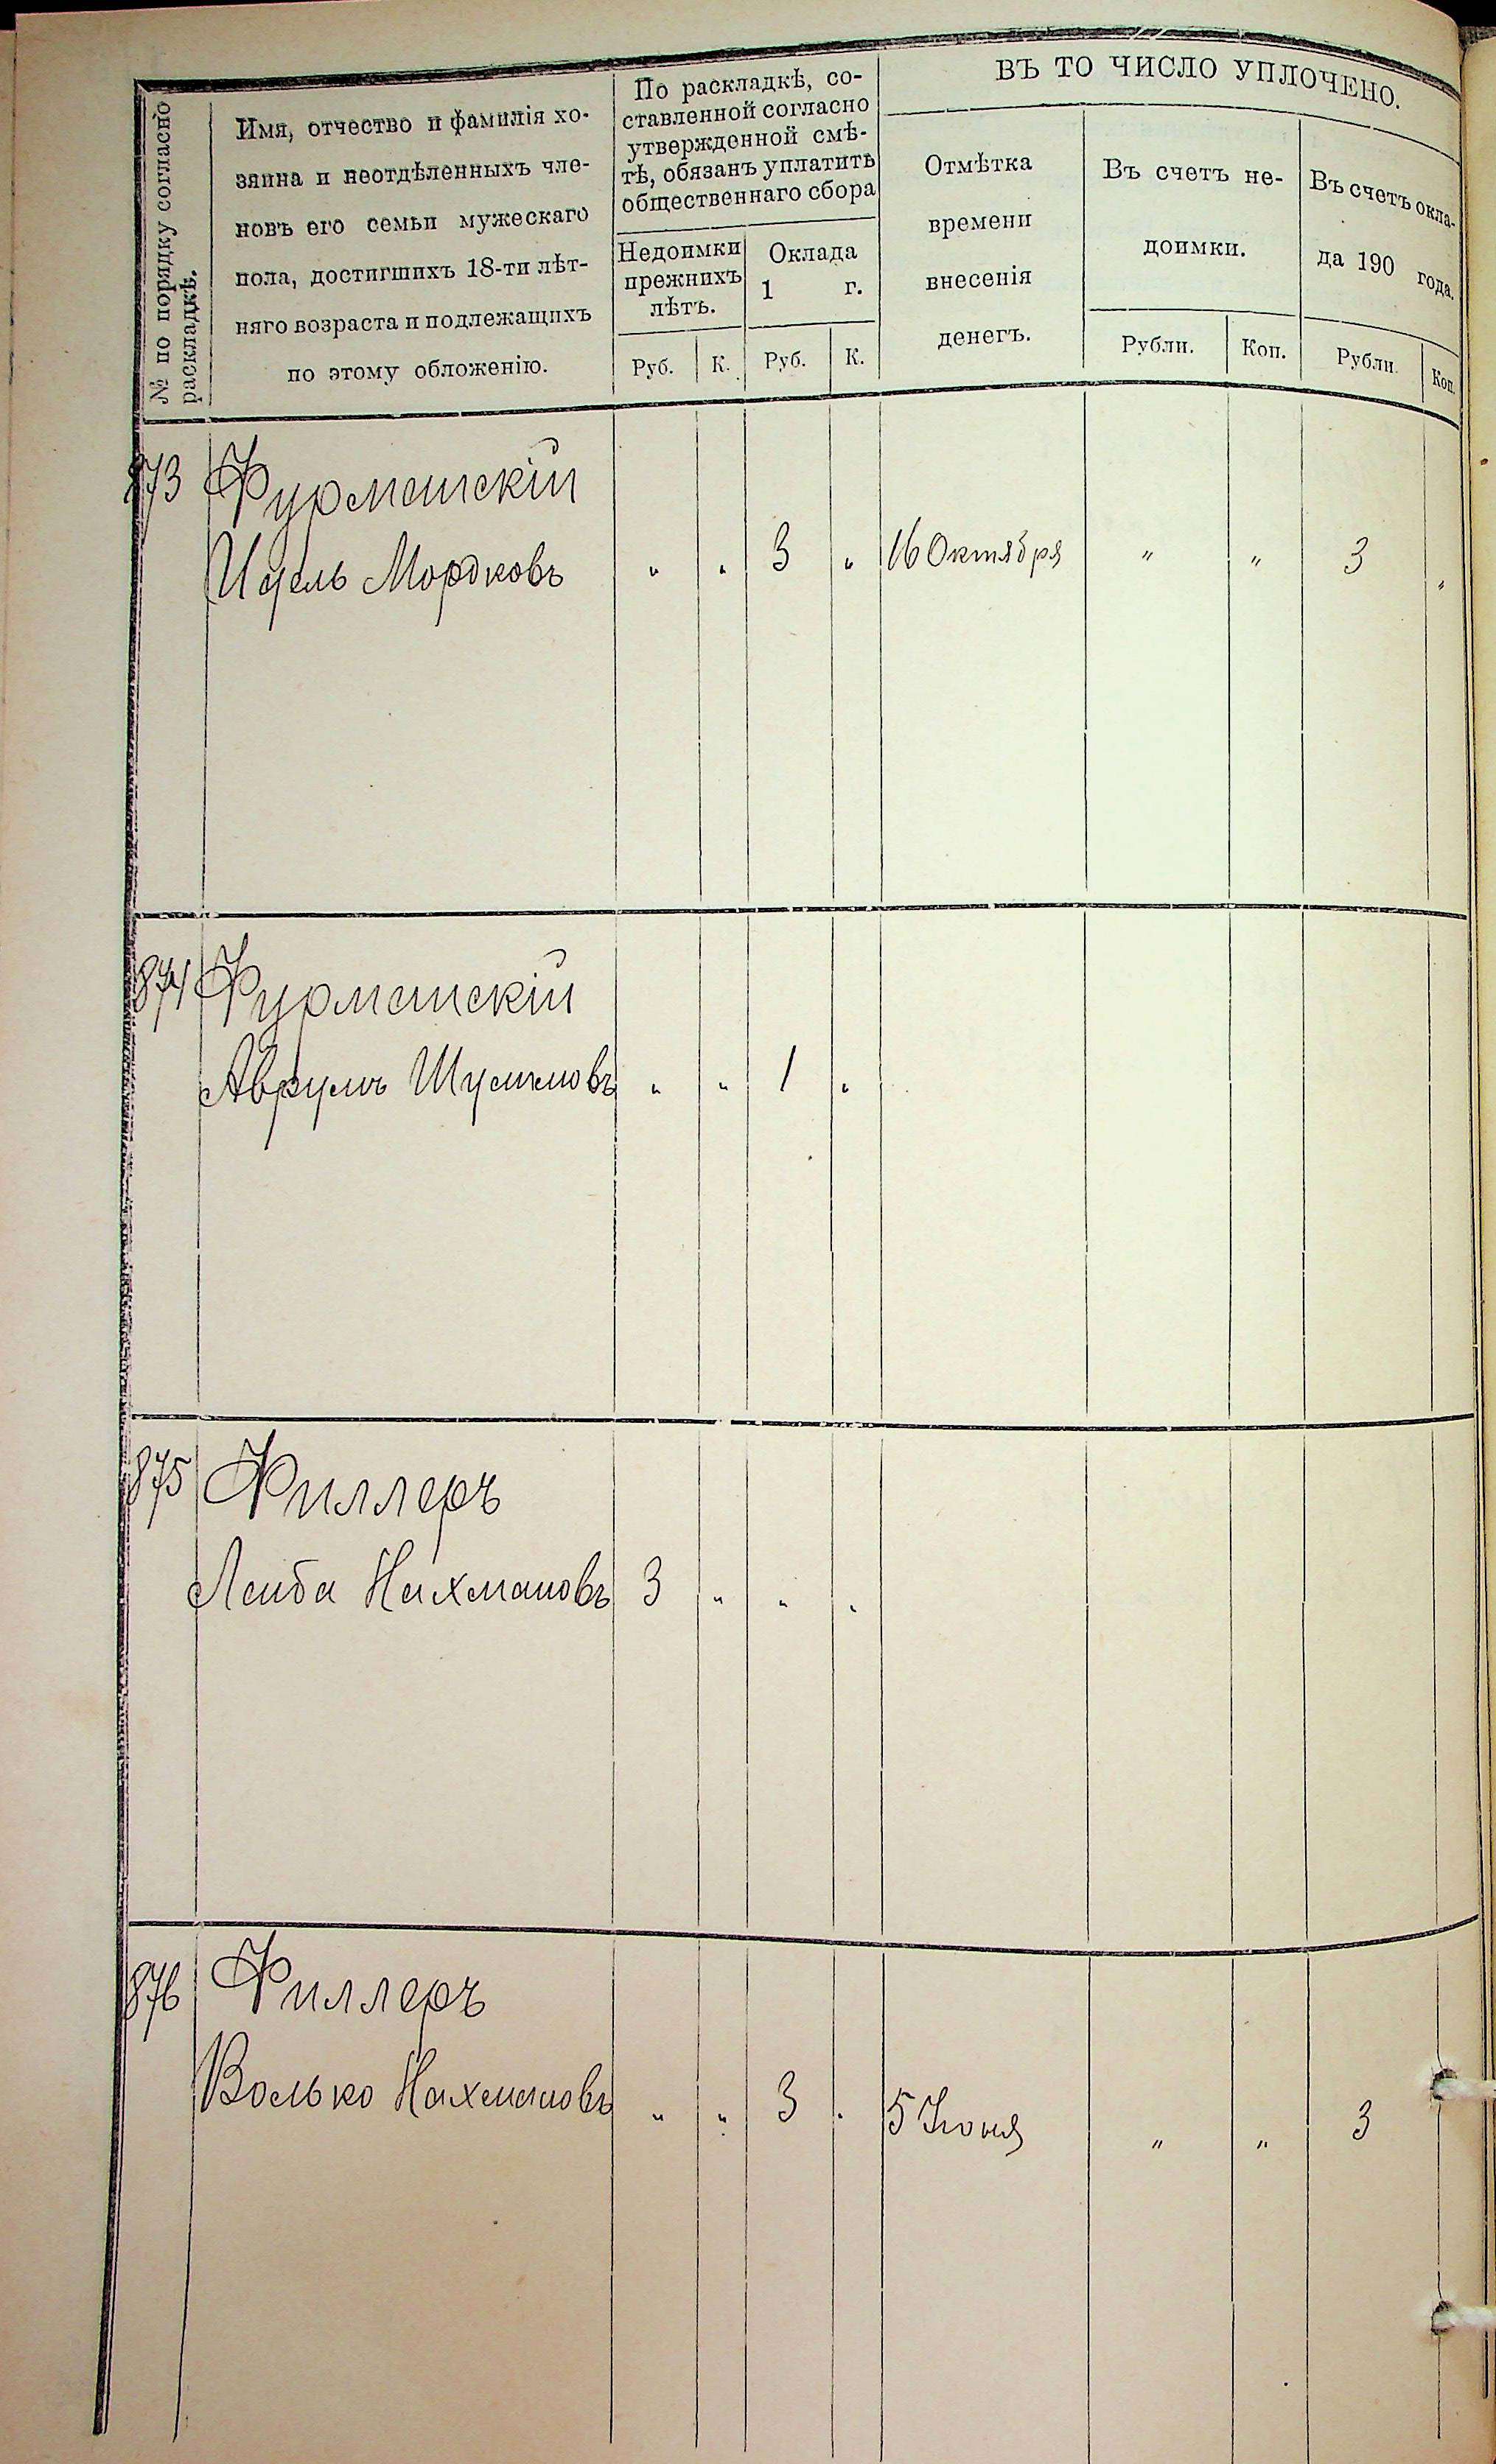 № по порядку согласно
раскладкѣ.
Имя, отчество и фамилія хо-
зяина и неотдѣленныхъ чле-
новъ его семьи мужескаго
пола, достигшихъ 18-ти лѣт-
няго возраста и подлежащихъ
по этому обложенію.
По раскладкѣ, со-
ставленной согласно
утвержденной смѣ-
тѣ, обязанъ уплатить
общественнаго сбора
Недоимки
прежнихъ
лѣтъ.
Оклада
1 г.
Руб. К. Руб. К.
ВЪ ТО ЧИСЛО УПЛОЧЕНО.
Отмѣтка
времени
внесенія
денегъ.
Въ счетъ не-
доимки.
Рубли. Коп.
Въ счетъ окла-
да 190 года.
Рубли. Коп.
873 Фурманскій
Ицель Мордковъ " " 3 " 16 Октября " " 3 "
874 Фурманскій
Аврумъ " " 1 "
875 Филлеръ
Лейба Нахмановъ 3 " " "
876 Филлеръ
Волько Нахмановъ " " 3 " 5 Іюня " " 3